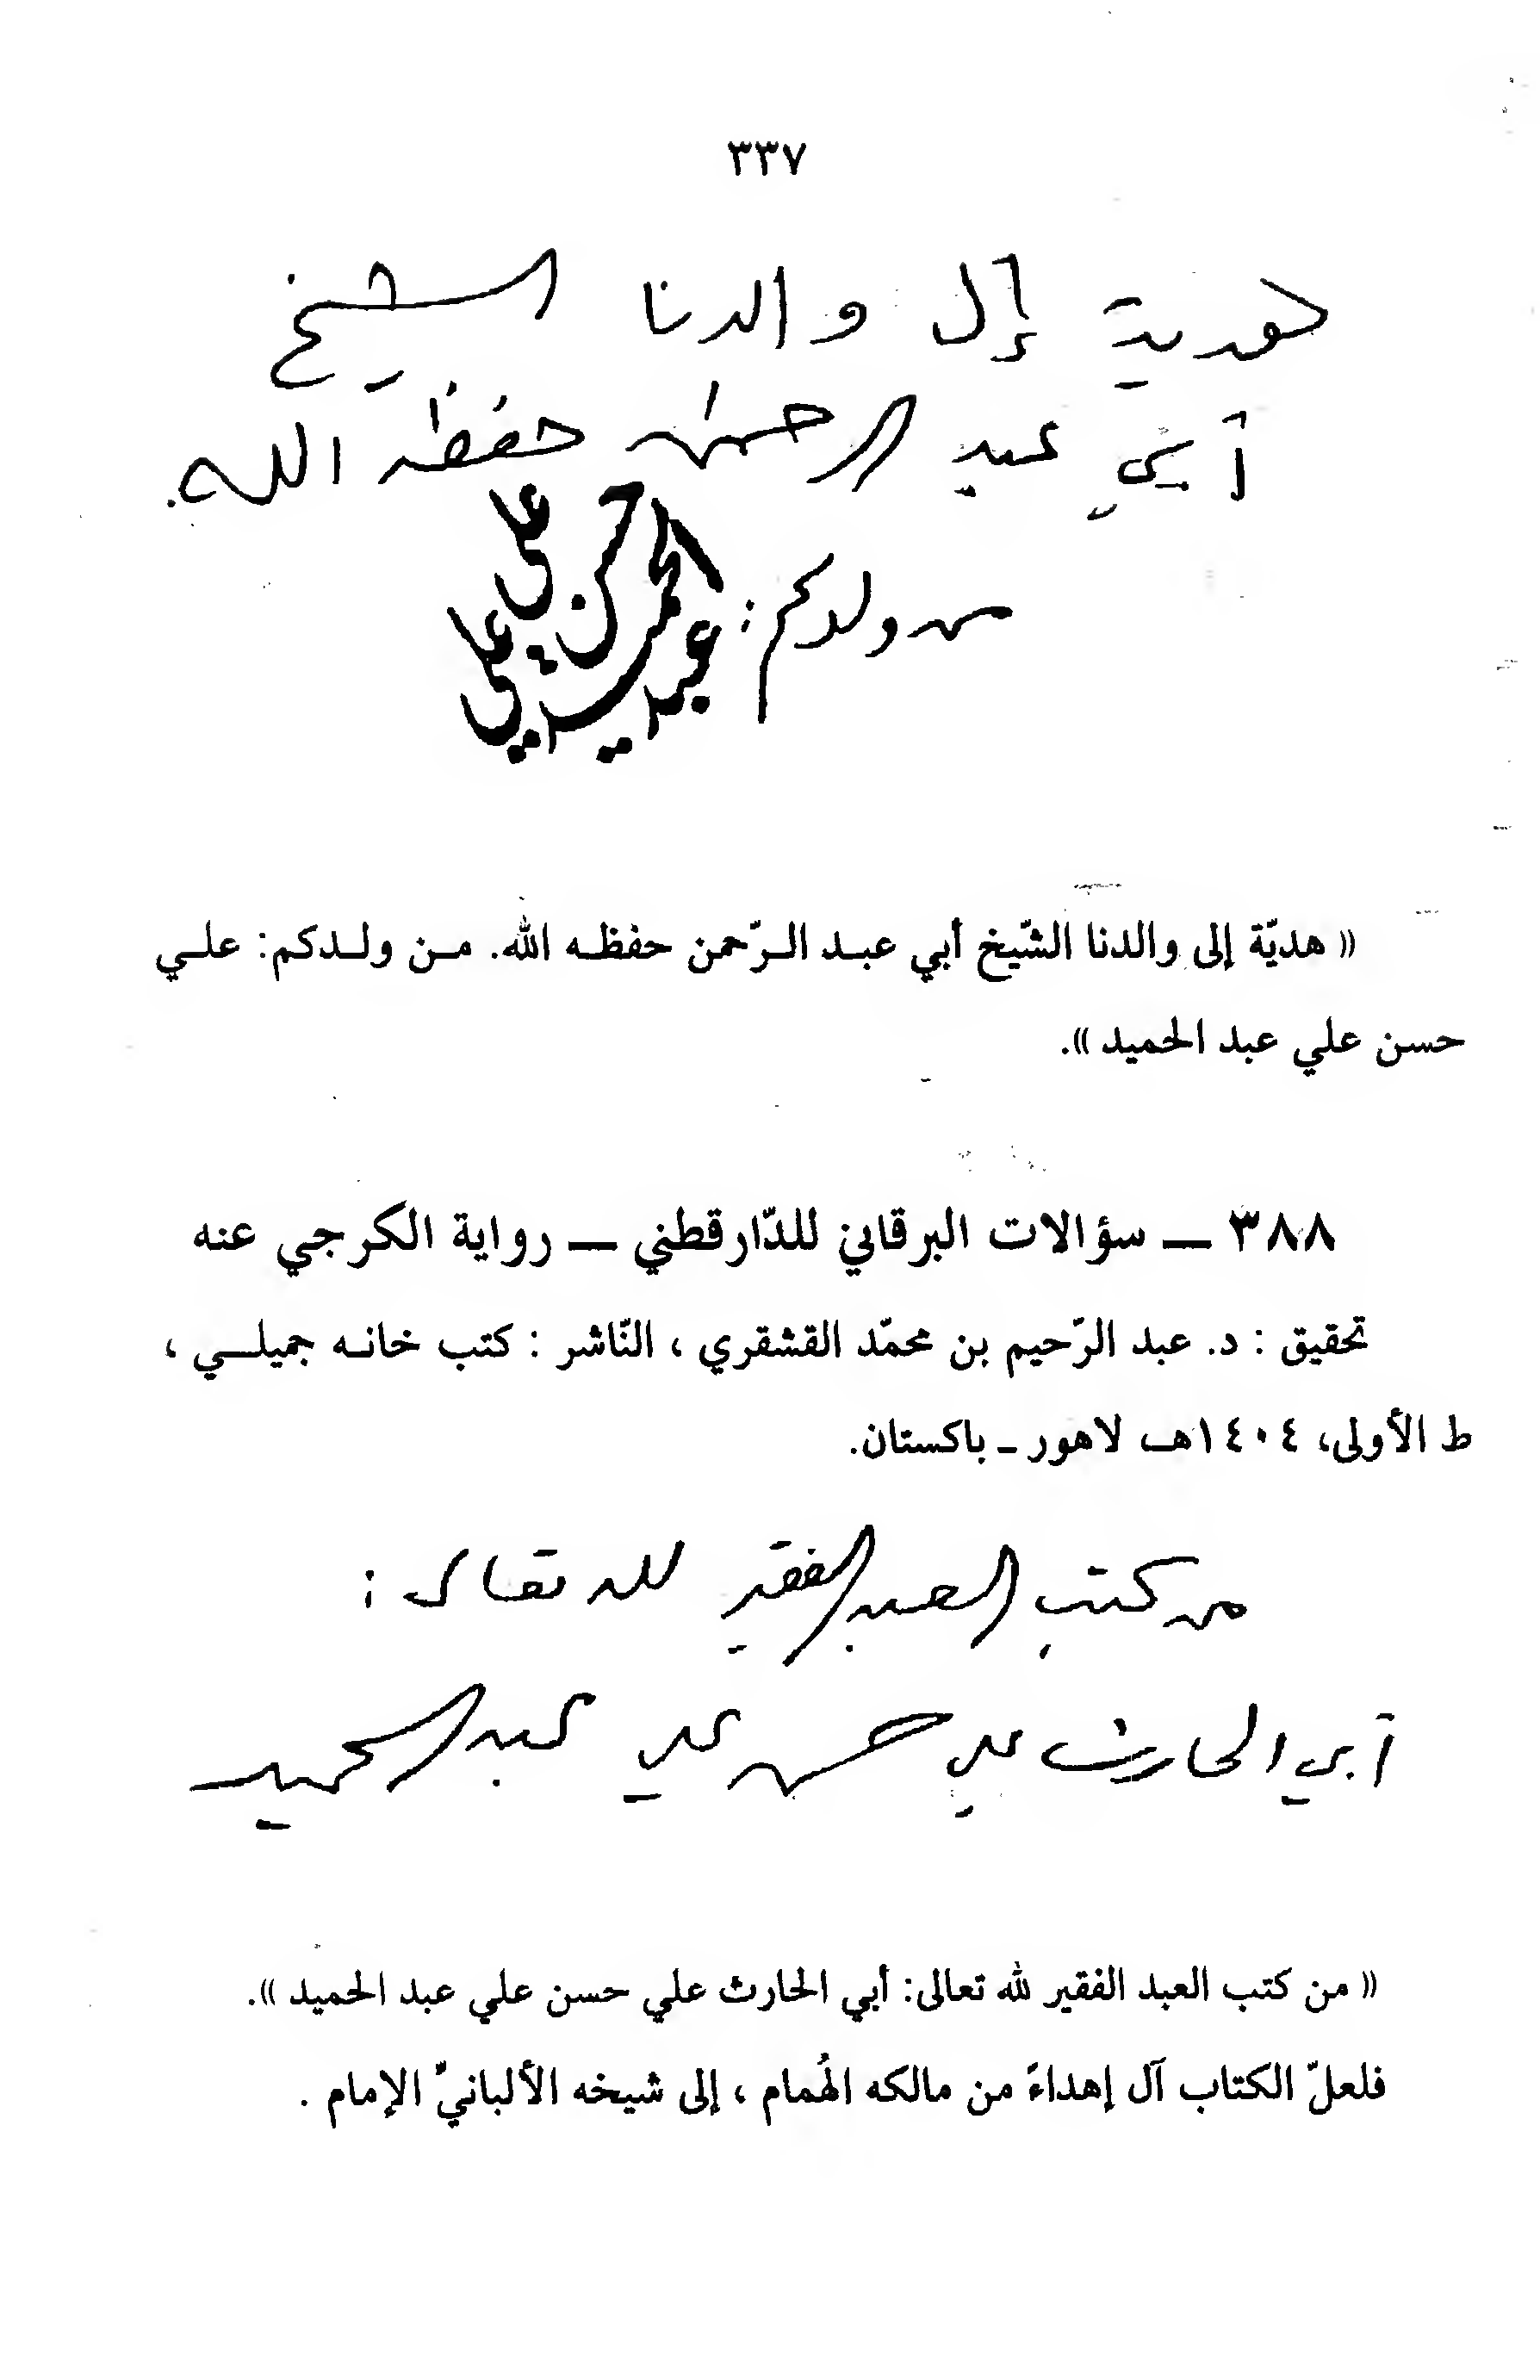 ٣٣٧
هدية إلى والدنا الشيخ
أبي عبد الرحمن حفظه الله.
من ولدكم:
علي حسن علي عبد الحميد
« هديّة إلى والدنا الشّيخ أبي عبـد الـرّحمن حفظـه الله. مـن ولـدكم: علـي
حسن علي عبد الحميد ».
٣٨٨ ــ سؤالات البرقاني للدّارقطني ــ رواية الكرجي عنه
تحقيق : د. عبد الرّحيم بن محمّد القشقري ، النّاشر : كتب خانـه جميلـي ،
ط الأولى، ١٤٠٤هـ لاهور ـ باكستان.
من كتب العبد الفقير لله تعالى :
أبي الحارث علي حسن علي عبد الحميد
« من كتب العبد الفقير لله تعالى: أبي الحارث علي حسن علي عبد الحميد ».
فلعلّ الكتاب آل إهداءً من مالكه الهُمام ، إلى شيخه الألبانيِّ الإمام .